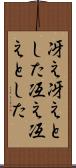 冴え冴えと
した冱え冱
えとした